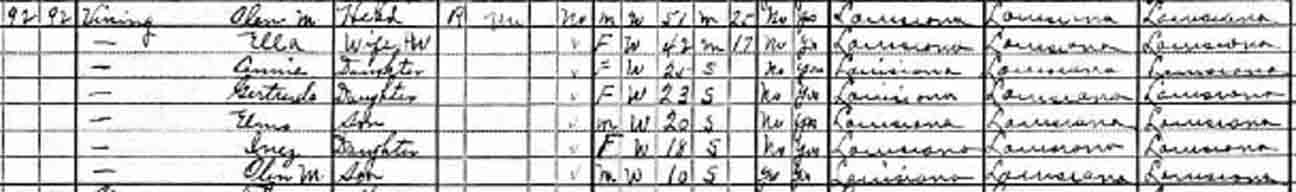 92 92 Vining Olen M Head R No M W 51 M 25 No Yes Louisiana Louisiana Louisiana
— Ella Wife-H W v F W 42 M 17 No Yes Louisiana Louisiana Louisiana
— Annie Daughter v F W 25 S No Yes Louisiana Louisiana Louisiana
— Gertrude Daughter v F W 23 S No Yes Louisiana Louisiana Louisiana
— Son v M W 20 S No Yes Louisiana Louisiana Louisiana
— Inez Daughter v F W 18 S No Yes Louisiana Louisiana Louisiana
— Olen M Son v M W 10 S Yes Yes Louisiana Louisiana Louisiana